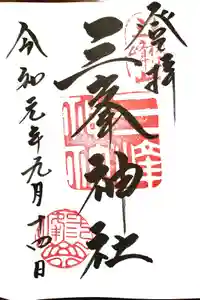 登拝
三峯神社
令和元年九月十四日